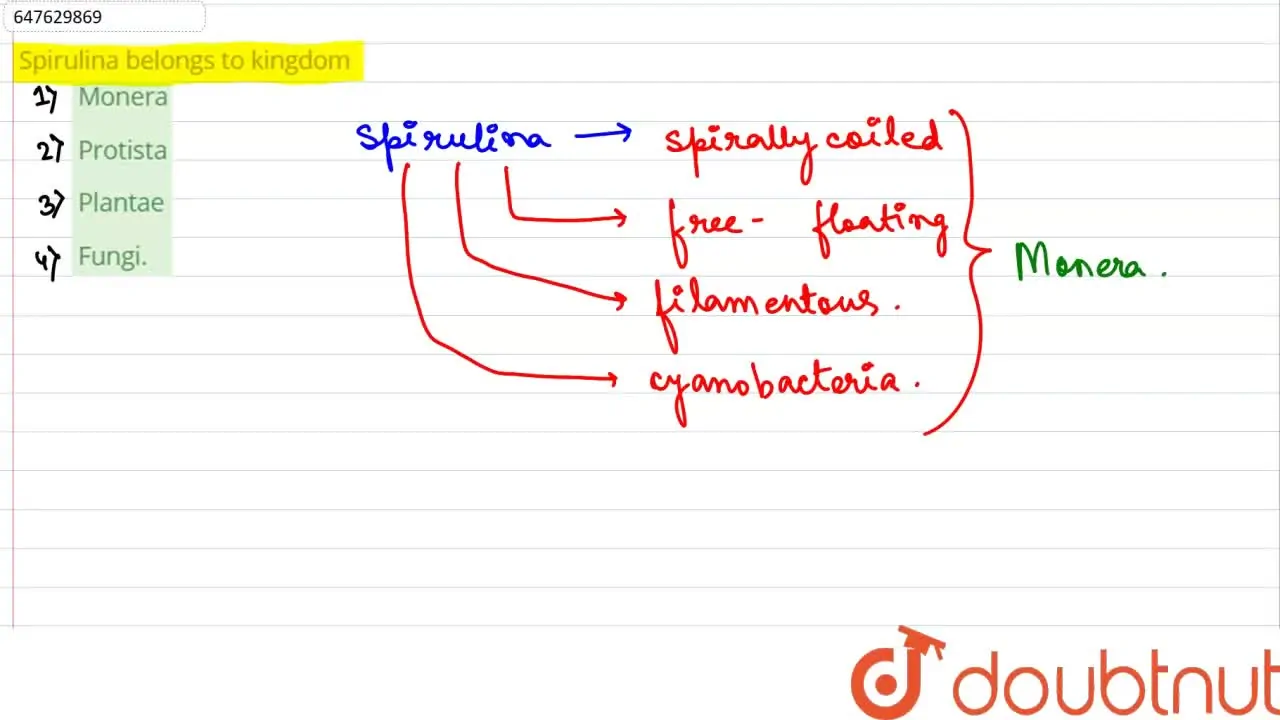 647629869
Spirulina belongs to kingdom
1) Monera
2) Protista
3) Plantae
4) Fungi.
Spirulina → spirally coiled
free - floating
filamentous.
cyanobacteria.
Monera.
doubtnut